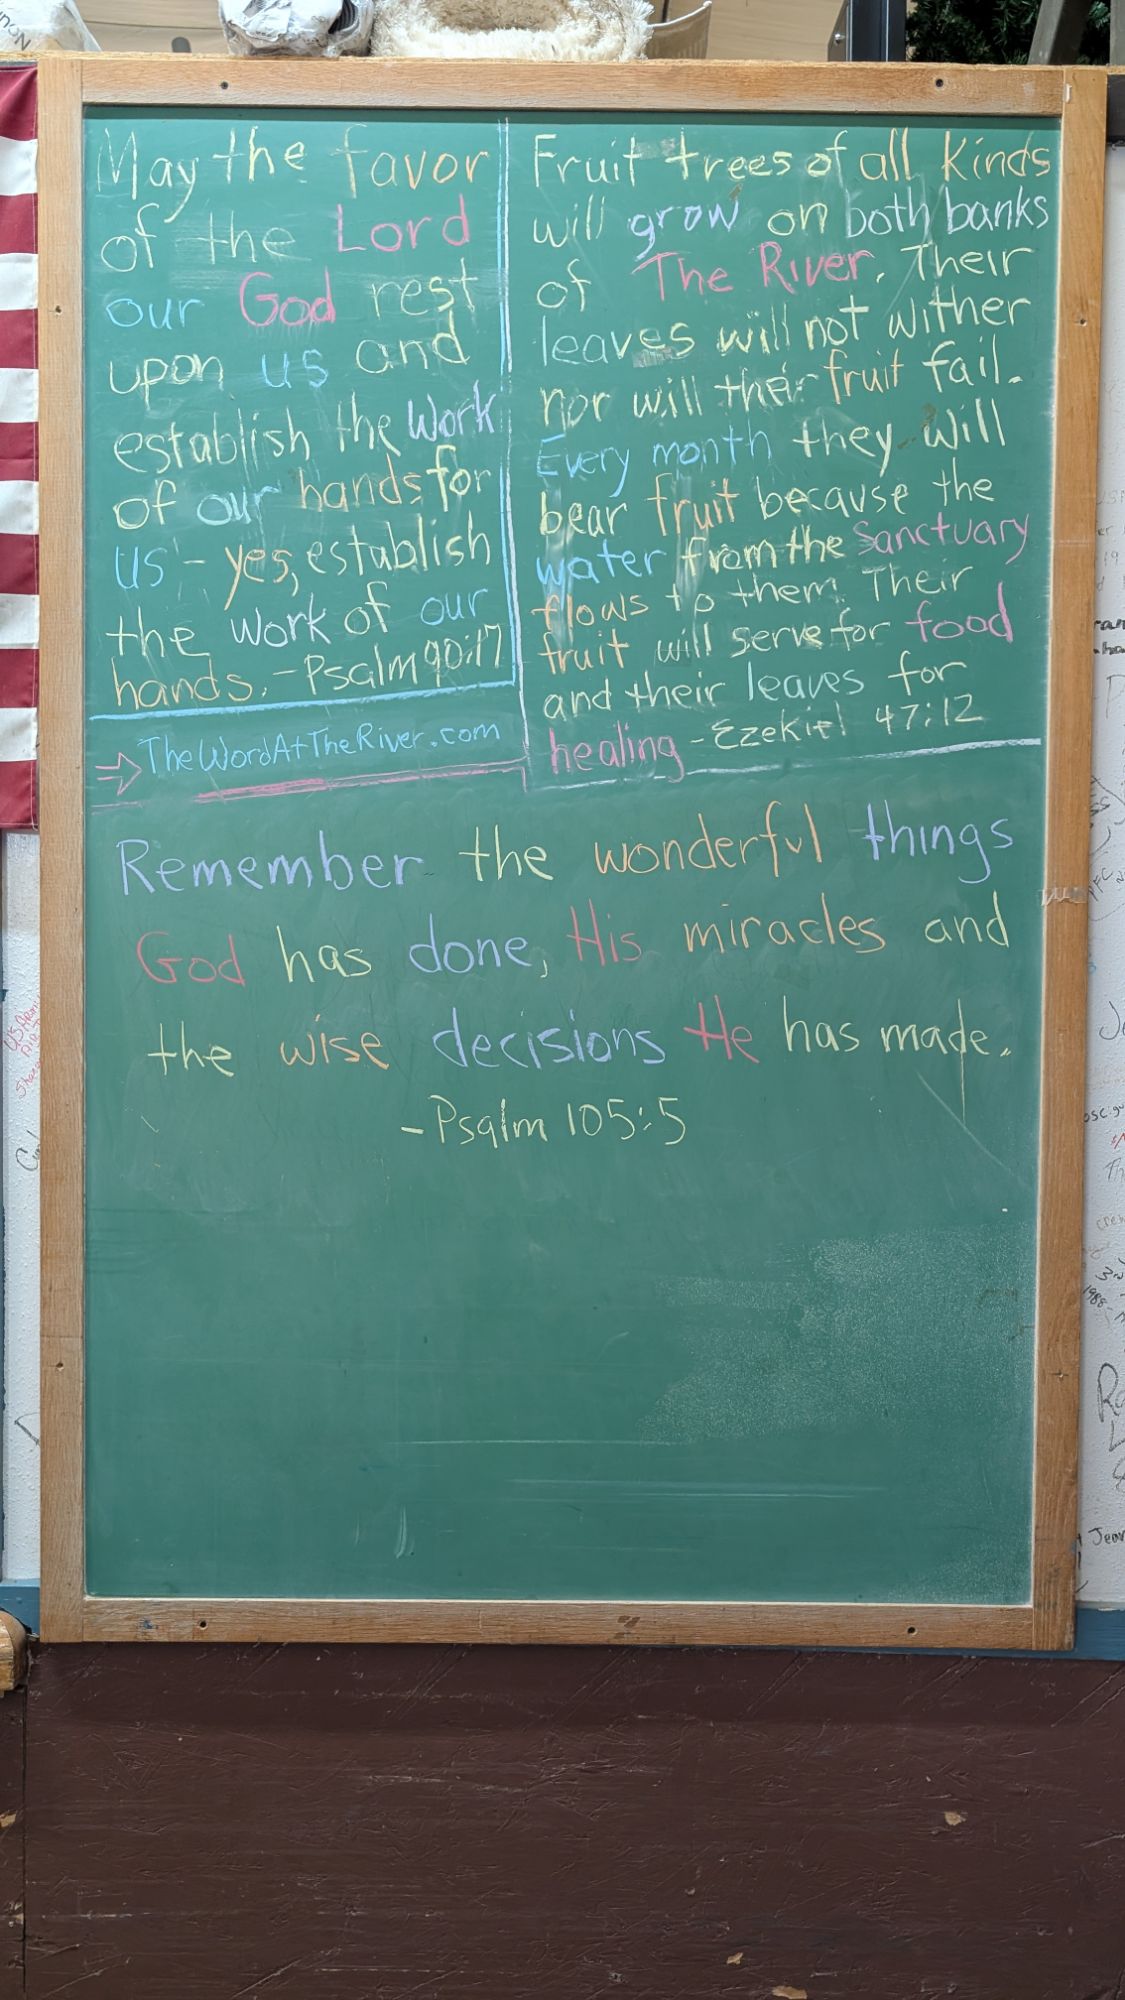 May the favor
of the Lord
our God rest
upon us and
establish the work
of our hands for
us - yes, establish
the work of our
hands. - Psalm 90:17
TheWordAtTheRiver.com
Fruit trees of all Kinds
will grow on both banks
of The River. Their
leaves will not wither
nor will their fruit fail.
Every month they will
bear fruit because the
water from the Sanctuary
flows to them. Their
fruit will serve for food
and their leaves for
healing - Ezekiel 47:12
Remember the wonderful things
God has done, His miracles and
the wise decisions He has made.
- Psalm 105:5